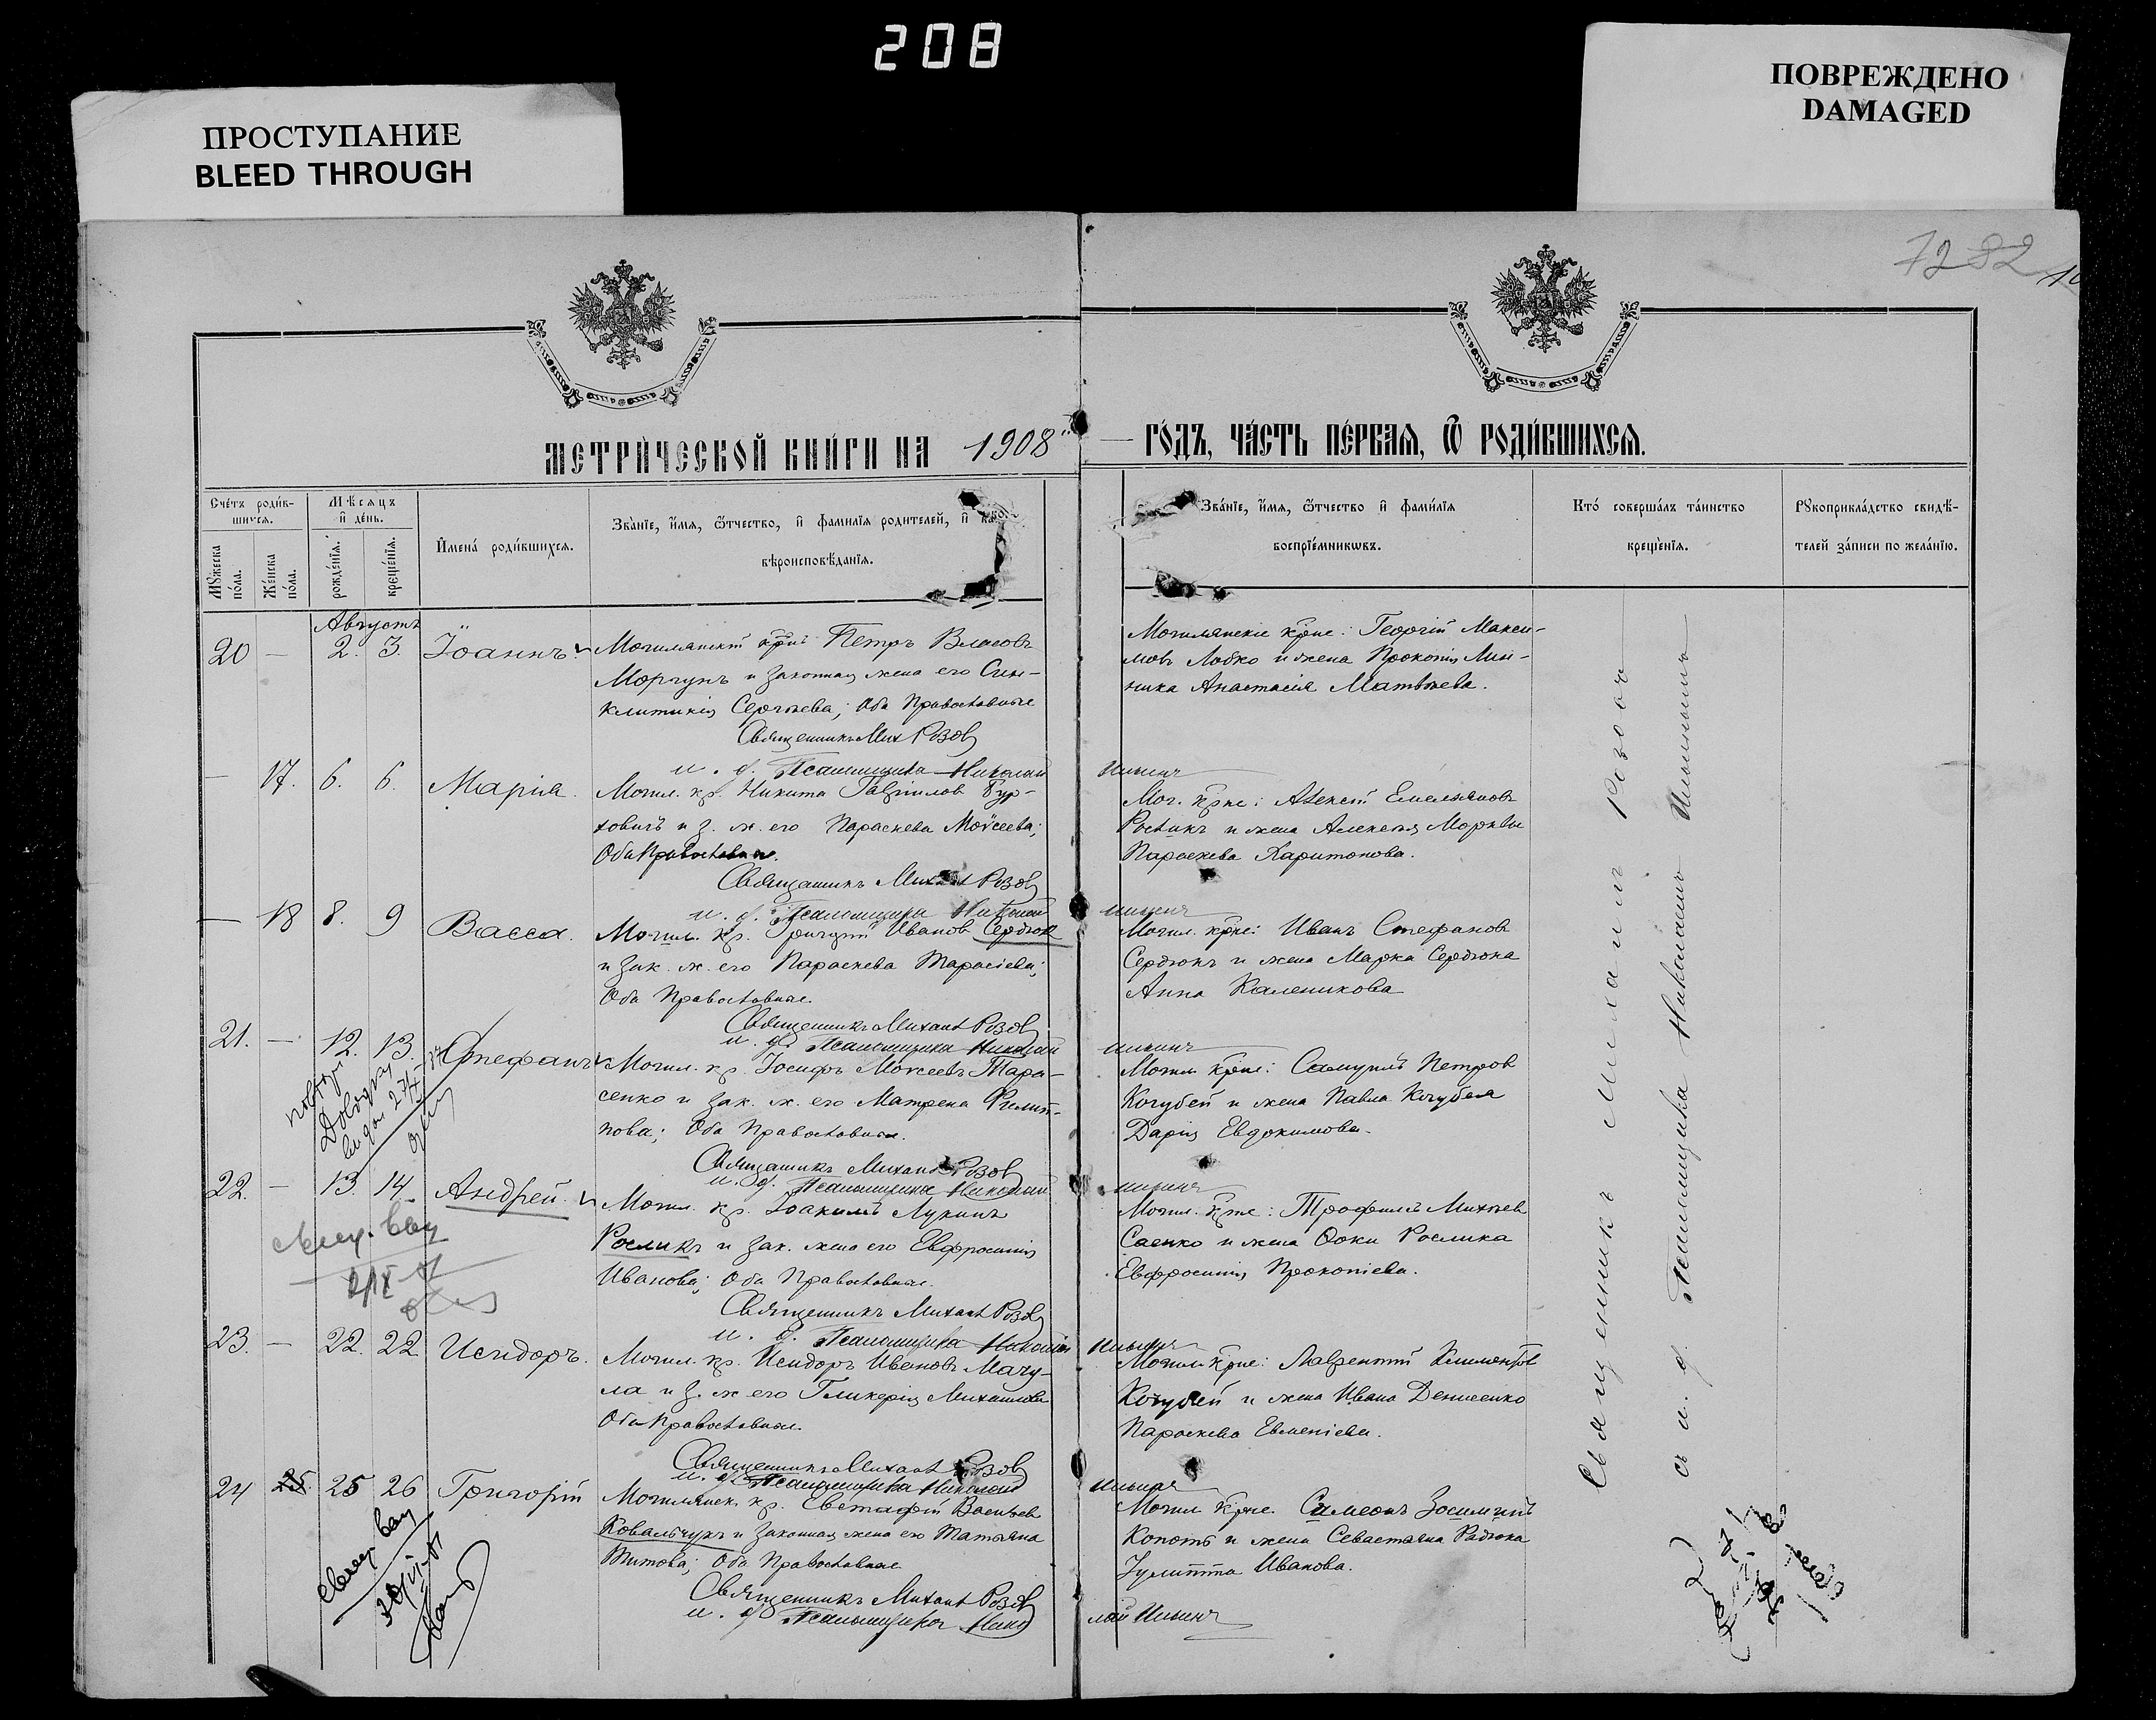 208
ПРОСТУПАНИЕ
BLEED THROUGH
ПОВРЕЖДЕНО
DAMAGED
72 82
МЕТРИ́ЧЕСКОЙ КНИ́ГИ НА 1908
ГО́ДЪ, ЧА́СТЬ ПЕ́РВАѦ, Ѿ РОДИ́ВШИХСѦ.
Сче́тъ роди́в-
шихсѧ.
Мѣсѧцъ
и҆ де́нь.
Мꙋжеска по́ла.
Же́нска по́ла.
рожде́нїѧ.
креще́нїѧ.
И҆мена́ роди́вшихсѧ.
Зва́нїе, и҆́мѧ, ѻ҆́тчество, и҆ фами́лїѧ родителей, и҆
вѣроисповѣ́данїѧ.
Зва́нїе, и҆́мѧ, ѻ҆́тчество и҆ фами́лїѧ
воспрїе́мникѡвъ.
Кто́ соверша́лъ та́инство
креще́нїѧ.
Рꙋкоприкла́дство свидѣ́-
телей за́писи по жела́нїю.
Августъ
20 — 2. 3. Іоаннъ.
Могилянскій крнъ Петръ Власовъ
Моргунъ и законная жена его Син-
клитикія Сергѣева; Оба Православные
Священникъ Мих Розовъ
и. д. Псаломщика Николай Ильинъ
Могилянскіе крне: Георгій Макси-
мовъ Лобко и жена Прокопія Мин-
ника Анастасія Матвѣева.
— 17. 6. 6. Марія.
Могил. кр. Никита Гавріиловъ Бур-
ковичъ и з. ж. его Параскева Моѵсеева;
Оба Православные.
Священникъ Михаил Розовъ
и. д. Псаломщика Николай Ильинъ
Мог. крне: Алексій Емельяновъ
Рослик и жена Алексея Морквы
Параскева Харитонова.
— 18 8. 9 Васса.
Могил. кр. Григорій Ивановъ Сердюк
и зак. ж. его Параскева Тарасіева;
Оба Православные.
Священникъ Михаил Розовъ
и. д. Псаломщика Николай Ильинъ
Могил. крне: Иванъ Стефановъ
Сердюкъ и жена Марка Сердюка
Анна Каленикова
21. — 12. 13. Стефанъ
Могил. кр. Іосифъ Моѵсеевъ Тара-
сенко и зак. ж. его Матрена Филип-
пова; Оба Православные.
Священникъ Михаил Розовъ
и. д. Псаломщика Николай Ильинъ
Могил крне: Самуилъ Петров
Кочубей и жена Павла Кочубея
Дарія Евдокимова.
22. — 13. 14. Андрей.
Могил. кр. Іоакимъ Лукинъ
Росликъ и зак. жена его Евфросинія
Иванова; Оба Православные.
Священникъ Михаил Розовъ
и. д. Псаломщика Николай Ильинъ
Могил. крне: Трофимъ Михѣев
Саенко и жена Ѳоки Рослика
Евфросинія Прокопіева.
23. — 22. 22 Исидоръ.
Могил. кр. Исидоръ Ивановъ Мачу-
ла и з. ж его Гликерія Михаилова
Оба Православные.
Священникъ Михаил Розовъ
и. д. Псаломщика Николай Ильинъ
Могил крне: Лаврентій Климентов
Кочубей и жена Ивана Денисенко
Параскева Евменіева.
24 25. 25 26 Григорій
Могилянск. кр. Евстафій Васильев
Ковальчукъ и законная жена его Татьяна
Титова; Оба Православные
Священникъ Михаил Розовъ
и. д. Псаломщика Николай Ильинъ
Могил крне. Симеонъ Зосиминъ
Копоть и жена Севастьяна Радюка
Іулитта Иванова.
Священникъ Михаилъ Розовъ
съ и. д. Псаломщика Николаемъ Ильинымъ